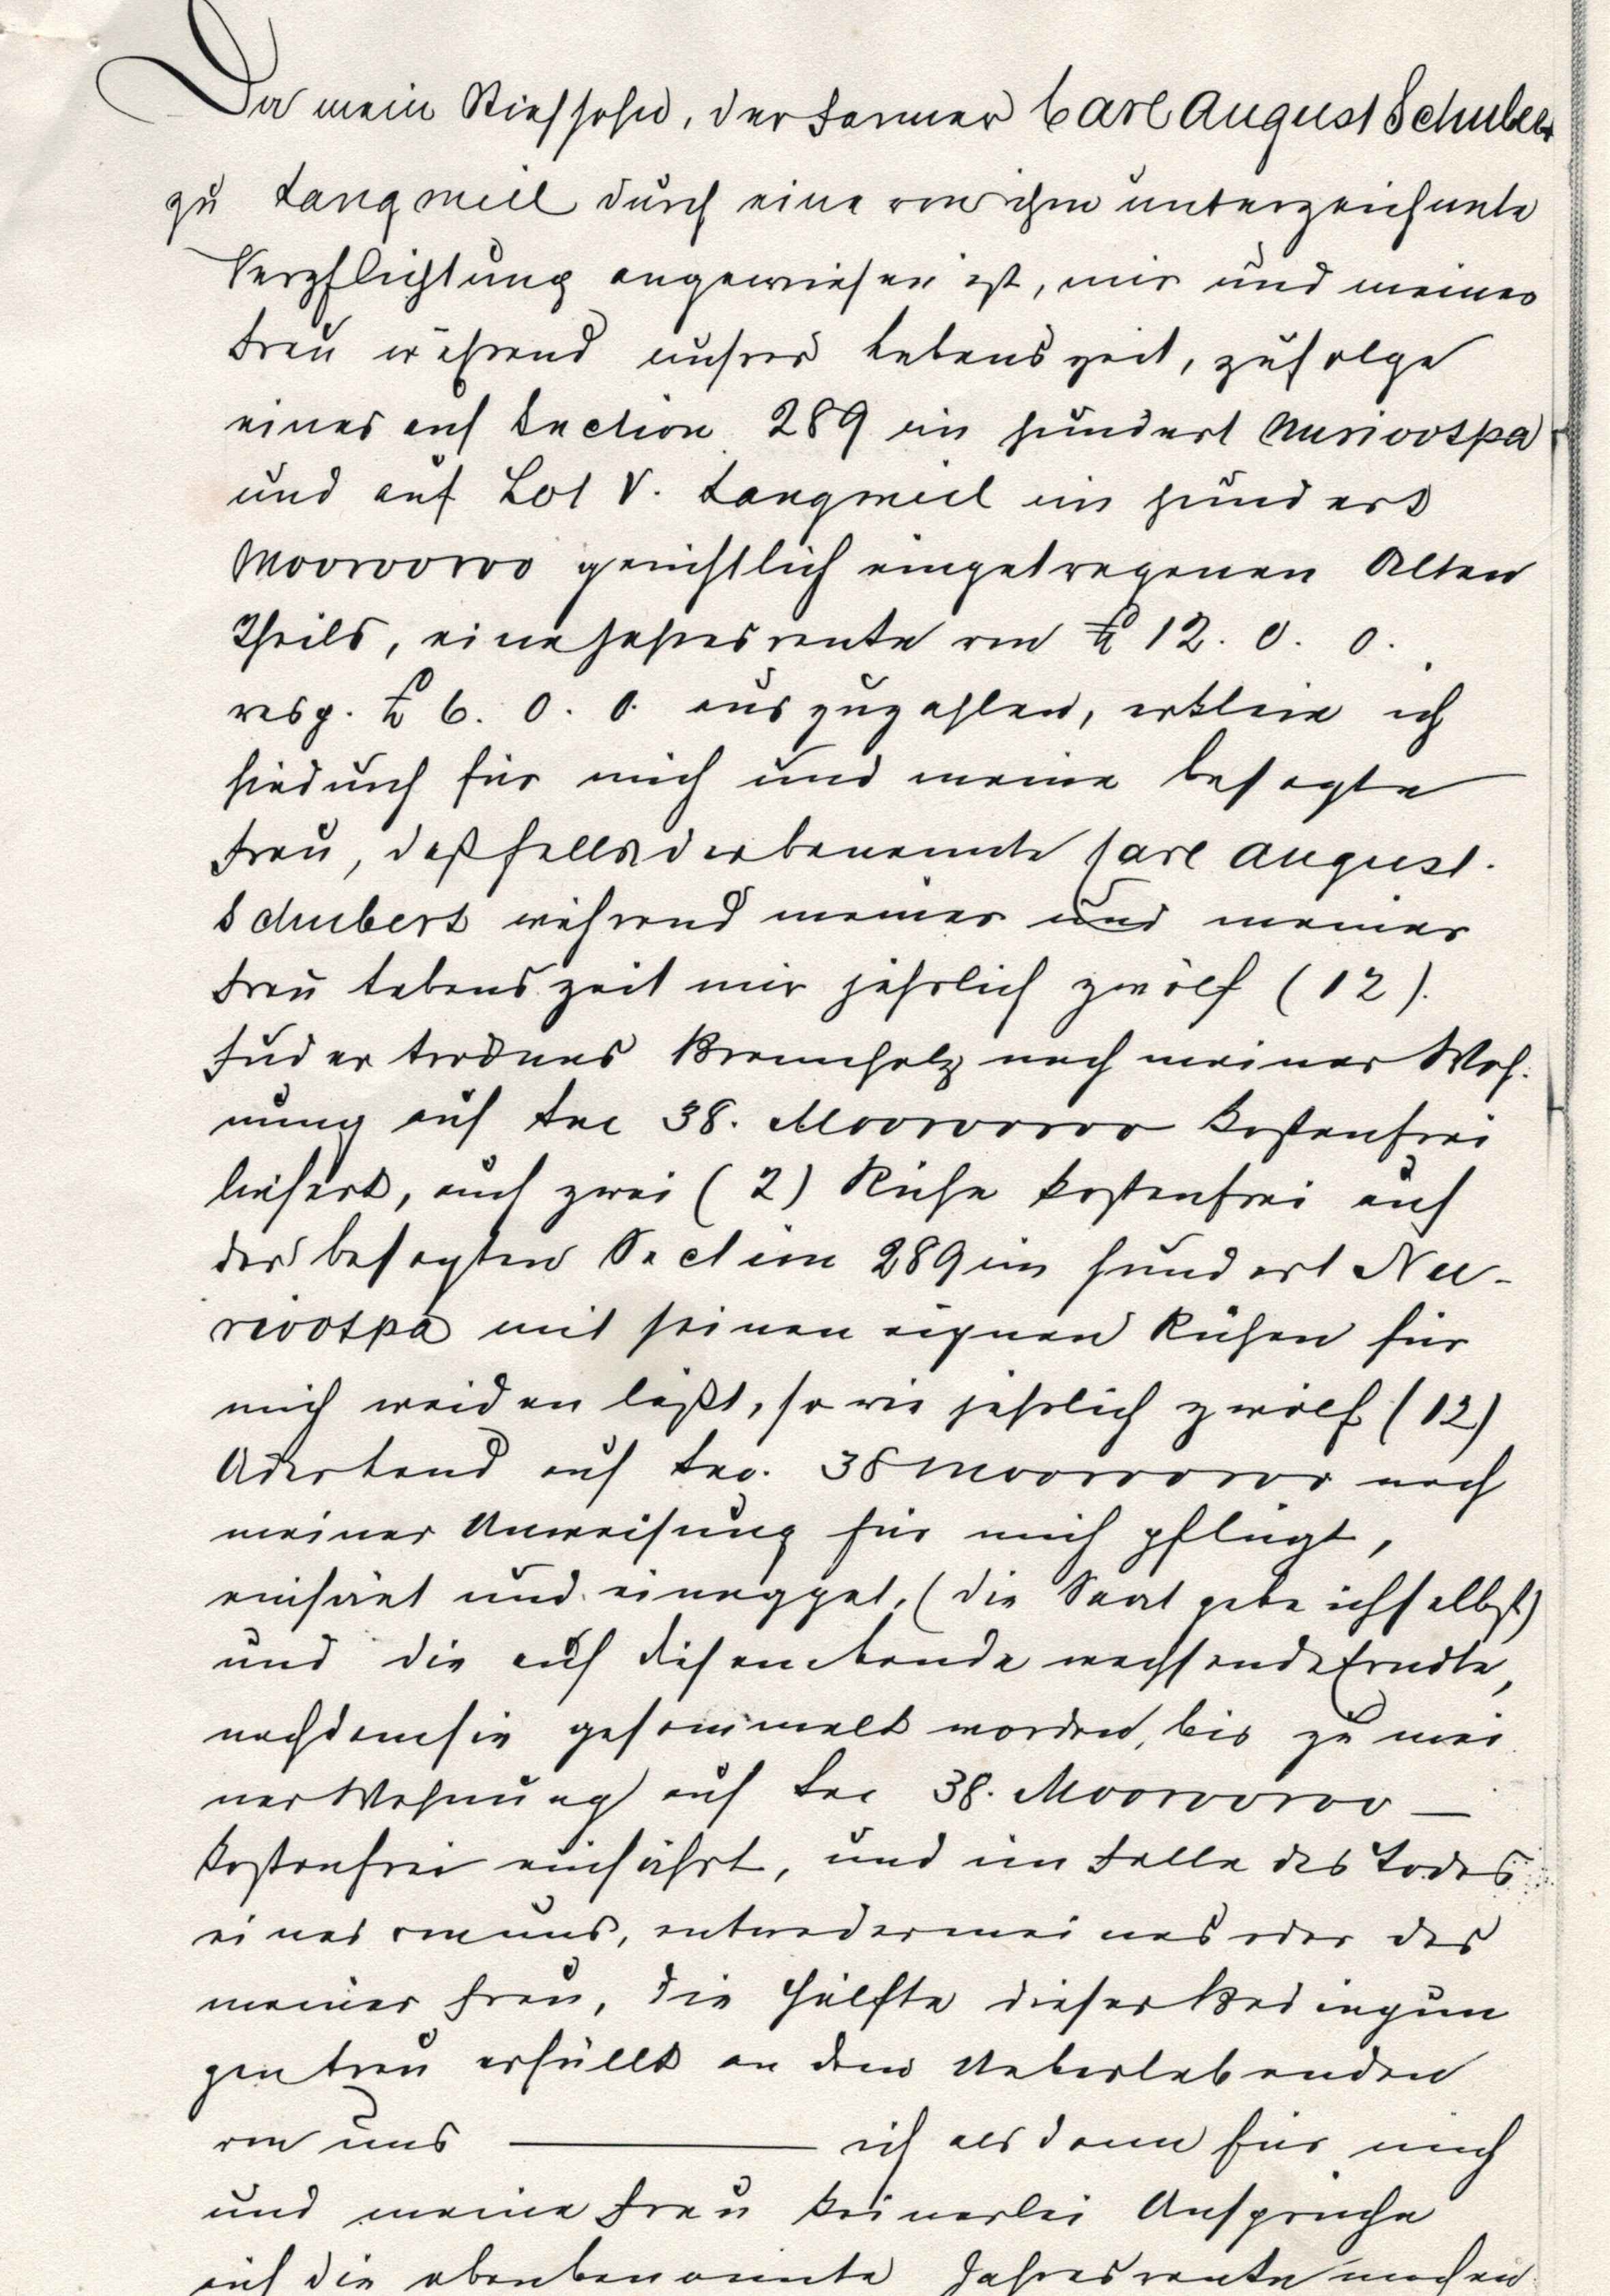 Da mein Stiefsohn, der Farmer Carl August Schubert
zu Langmeil durch eine von ihm unterzeichnete
Verpflichtung angewiesen ist, mir und meiner
Frau während unsrer Lebenszeit, zufolge
eines auf Section 289 im Hundert Nuriootpa
und auf Lot V. Langmeil im Hundert
Moorooroo gerichtlich eingetragenen Alten
Theils, eine Jahresrente von £ 12. 0. 0.
resp. £ 6. 0. 0. auszuzahlen, erkläre ich
hiedurch für mich und meine besagte
Frau, daß falls der benannte Carl August
Schubert während meiner und meiner
Frau Lebenszeit mir jährlich zwölf (12).
Fuder trocknes Brennholz nach meiner Woh-
nung auf Sec 38. Moorooroo kostenfrei
liefert, auch zwei (2) Kühe kostenfrei auf
der besagten Section 289 im Hundert Nu-
riootpa mit seinen eignen Kühen für
mich weiden läßt, so wie jährlich zwölf (12)
Ackerland auf Sec. 38 Moorooroo nach
meiner Anweisung für mich pflügt,
einsäet und einegget, (die Saat gebe ich selbst)
und die auf diesem Lande wachsende Erndte,
nachdem sie gesammelt worden, bis zu mei
ner Wohnung auf Sec 38. Moorooroo —
kostenfrei einfährt, und im Falle des Todes
eines von uns, entweder meines oder des
meiner Frau, die Hälfte dieser Bedingun
gen treu erfüllt an dem Ueberlebenden
von uns ——— ich alsdann für mich
und meine Frau keinerlei Ansprüche
auf die obenbenannte Jahresrente machen